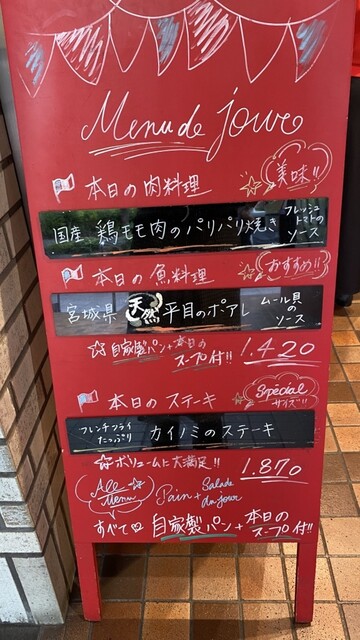 Menu de jour
本日の肉料理 美味!!
国産 鶏モモ肉のパリパリ焼き フレッシュトマトのソース
本日の魚料理 おすすめ!!
宮城県 天然 平目のポアレ ムール貝のソース
☆自家製パン+本日のスープ付!! 1.420
本日のステーキ Special サイズ!!
フレンチフライたっぷり カイノミのステーキ
☆ボリュームに大満足!! 1.870
All Menu Pain + Salade du jour
すべて♡ 自家製パン+本日のスープ付!!